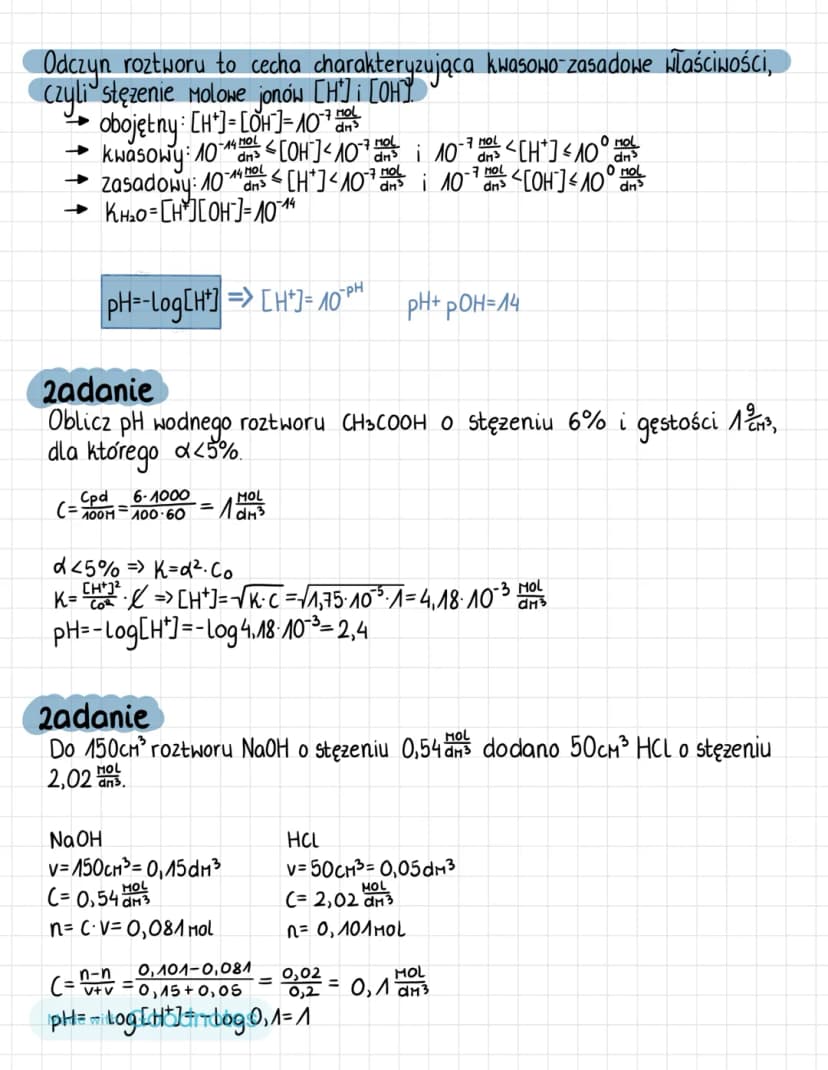 Odczyn roztworu to cecha charakteryzująca kwasowo-zasadowe właściwości,
czyli stężenie molowe jonów [H⁺] i [OH⁻].
→ obojętny: [H⁺]=[OH⁻]=10⁻⁷ mol/dm³
→ kwasowy: 10⁻¹⁴ mol/dm³ ≤ [OH⁻] < 10⁻⁷ mol/dm³ i 10⁻⁷ mol/dm³ < [H⁺] ≤ 10⁰ mol/dm³
→ zasadowy: 10⁻¹⁴ mol/dm³ ≤ [H⁺] < 10⁻⁷ mol/dm³ i 10⁻⁷ mol/dm³ < [OH⁻] ≤ 10⁰ mol/dm³
→ KH₂O=[H⁺][OH⁻]=10⁻¹⁴
pH=-log[H⁺] => [H⁺]=10^-pH pH+pOH=14
zadanie
Oblicz pH wodnego roztworu CH₃COOH o stężeniu 6% i gęstości 1 g/cm³,
dla którego α<5%.
C= Cpd/100M = 6·1000/100·60 = 1 mol/dm³
α<5% => K=α²·C₀
K= [H⁺]²/C₀² · C => [H⁺]=√K·C = √1,75·10⁻⁵·1 = 4,18·10⁻³ mol/dm³
pH=-log[H⁺]=-log4,18·10⁻³=2,4
zadanie
Do 150cm³ roztworu NaOH o stężeniu 0,54 mol/dm³ dodano 50cm³ HCl o stężeniu
2,02 mol/dm³.
NaOH HCl
v=150cm³=0,15dm³ v=50cm³=0,05dm³
C=0,54 mol/dm³ C=2,02 mol/dm³
n=C·V=0,081mol n=0,101mol
C= n-n/v+v = 0,101-0,081/0,15+0,05 = 0,02/0,2 = 0,1 mol/dm³
pH=-log[H⁺]=-log0,1=1
Made with Goodnotes